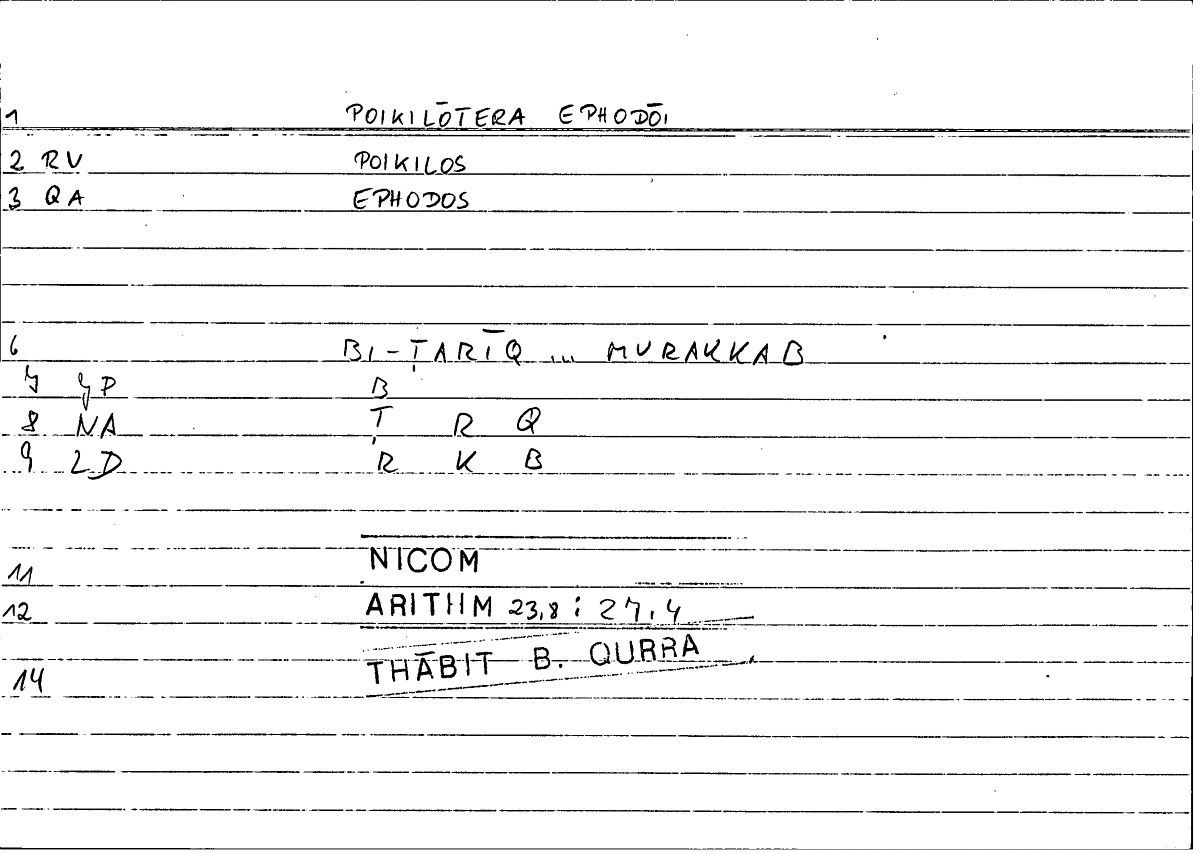 1 POIKILŌTERA EPHODŌI
2 RV POIKILOS
3 QA EPHODOS
6 BI-ṬARĪQ ... MURAKKAB
7 YP B
8 NA Ṭ R Q
9 LD R K B
11 NICOM
12 ARITHM 23,8 : 27,4
14 THĀBIT B. QURRA